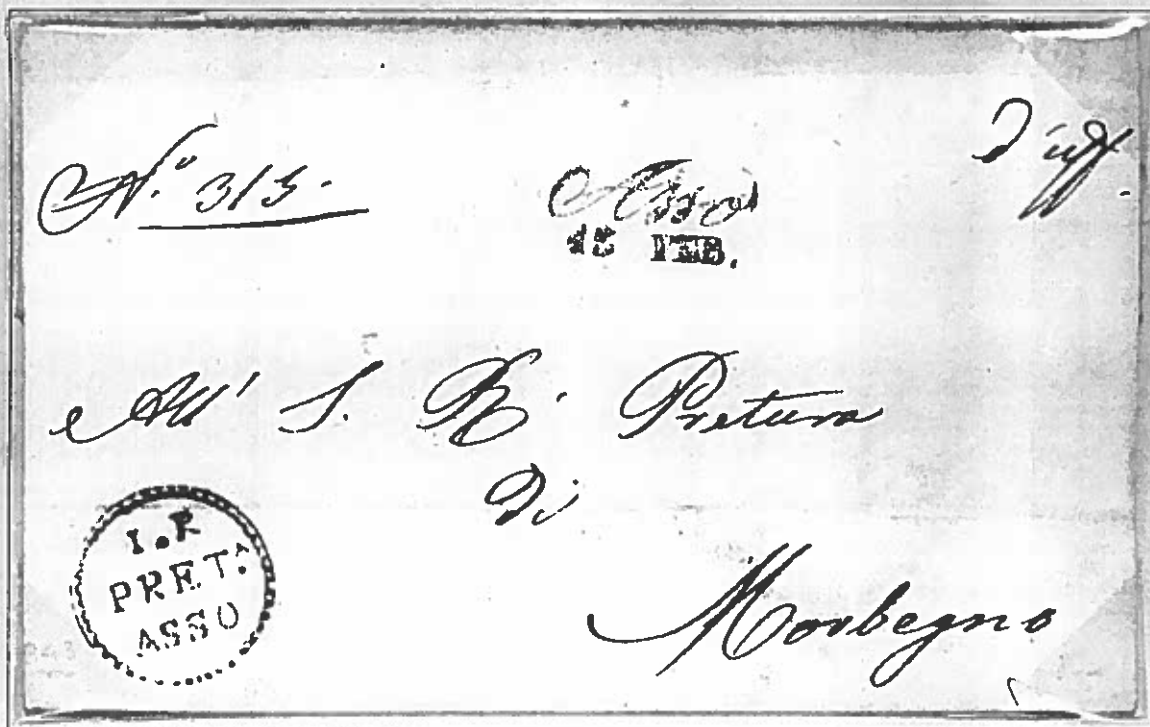 N.° 313.
D'uff.
Asso
18 FEB.
All' I. R. Pretura
Di
Morbegno
I. R
PRET.ᴬ
ASSO